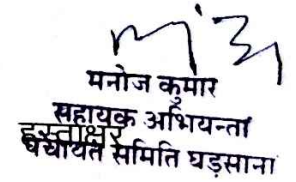 मनोज कुमार
सहायक अभियन्ता
हस्ताक्षर
पंचायत समिति घड़साना